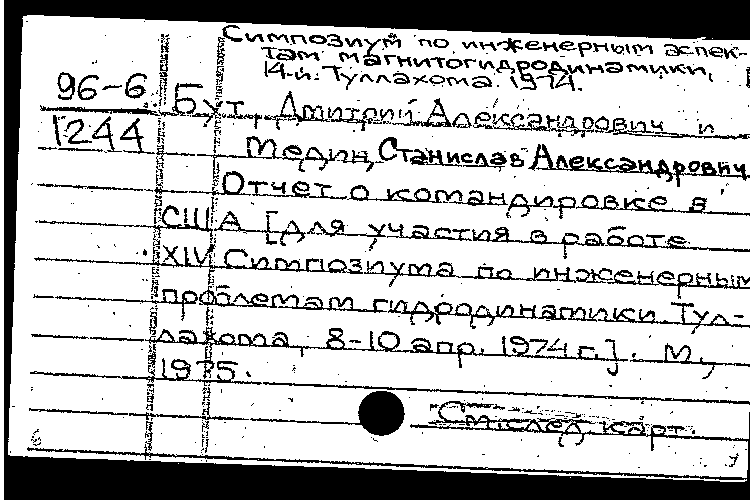 Симпозиум по инженерным аспек-
там магнитогидродинамики,
14-й. Туллахома. 1974.
96-6
1244
Бут, Дмитрий Александрович и
Медин, Станислав Александрович
Отчет о командировке в
США [для участия в работе
XIV Симпозиума по инженерным
проблемам гидродинамики. Тул-
лахома, 8-10 апр. 1974 г.]. М.,
1975.
См. след. карт.